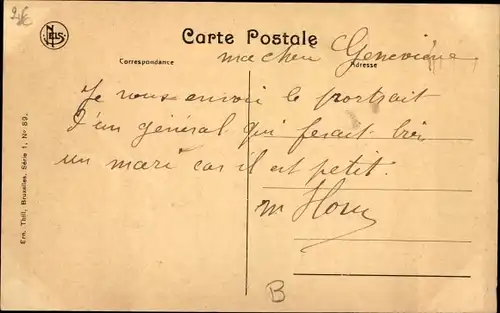 2€
NELS
Carte Postale
Correspondance
Adresse
ma chère Geneviève,
Je vous envoi le portrait
d'un général qui ferait bien
un mari car il est petit.
m
B
Ern. Thill, Bruxelles. Série 1, N° 89.